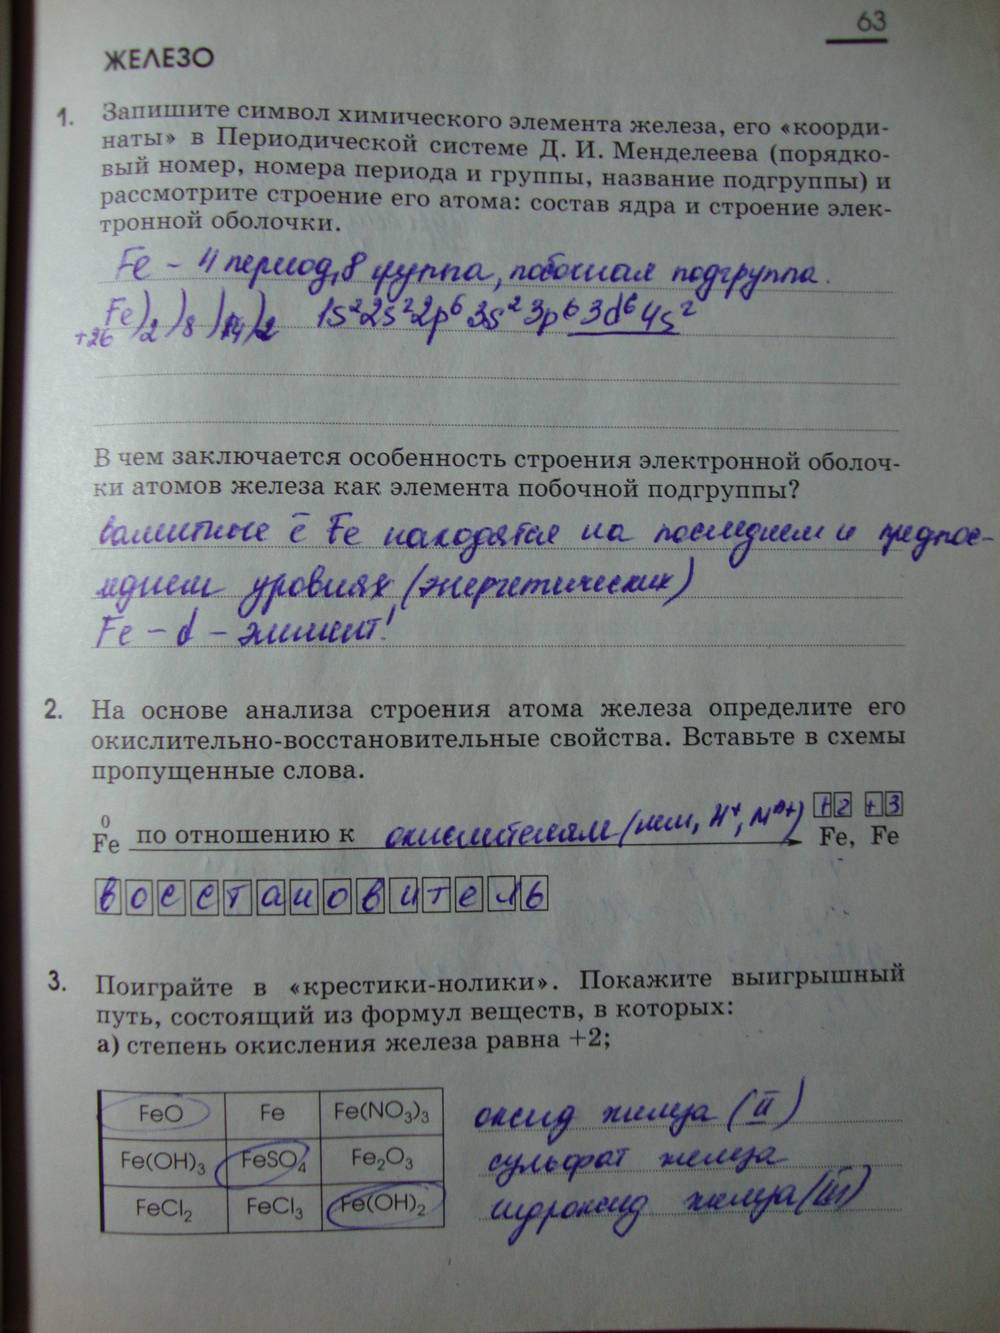 63
ЖЕЛЕЗО
1. Запишите символ химического элемента железа, его «коорди-
наты» в Периодической системе Д. И. Менделеева (порядко-
вый номер, номера периода и группы, название подгруппы) и
рассмотрите строение его атома: состав ядра и строение элек-
тронной оболочки.
Fe – 4 период, 8 группа, побочная подгруппа.
Fe )2 )8 )14 )2 1s² 2s² 2p⁶ 3s² 3p⁶ 3d⁶ 4s²
+26
В чем заключается особенность строения электронной оболоч-
ки атомов железа как элемента побочной подгруппы?
валентные ē Fe находятся на последнем и предпос-
леднем уровнях (энергетических)
Fe – d – элемент!
2. На основе анализа строения атома железа определите его
окислительно-восстановительные свойства. Вставьте в схемы
пропущенные слова.
0 +2 +3
Fe по отношению к окислителям (нем, H⁺, Mⁿ⁺) Fe, Fe
восстановитель
3. Поиграйте в «крестики-нолики». Покажите выигрышный
путь, состоящий из формул веществ, в которых:
а) степень окисления железа равна +2;
FeO Fe Fe(NO₃)₃ оксид железа (II)
Fe(OH)₃ FeSO₄ Fe₂O₃ сульфат железа
FeCl₂ FeCl₃ Fe(OH)₂ гидроксид железа (III)